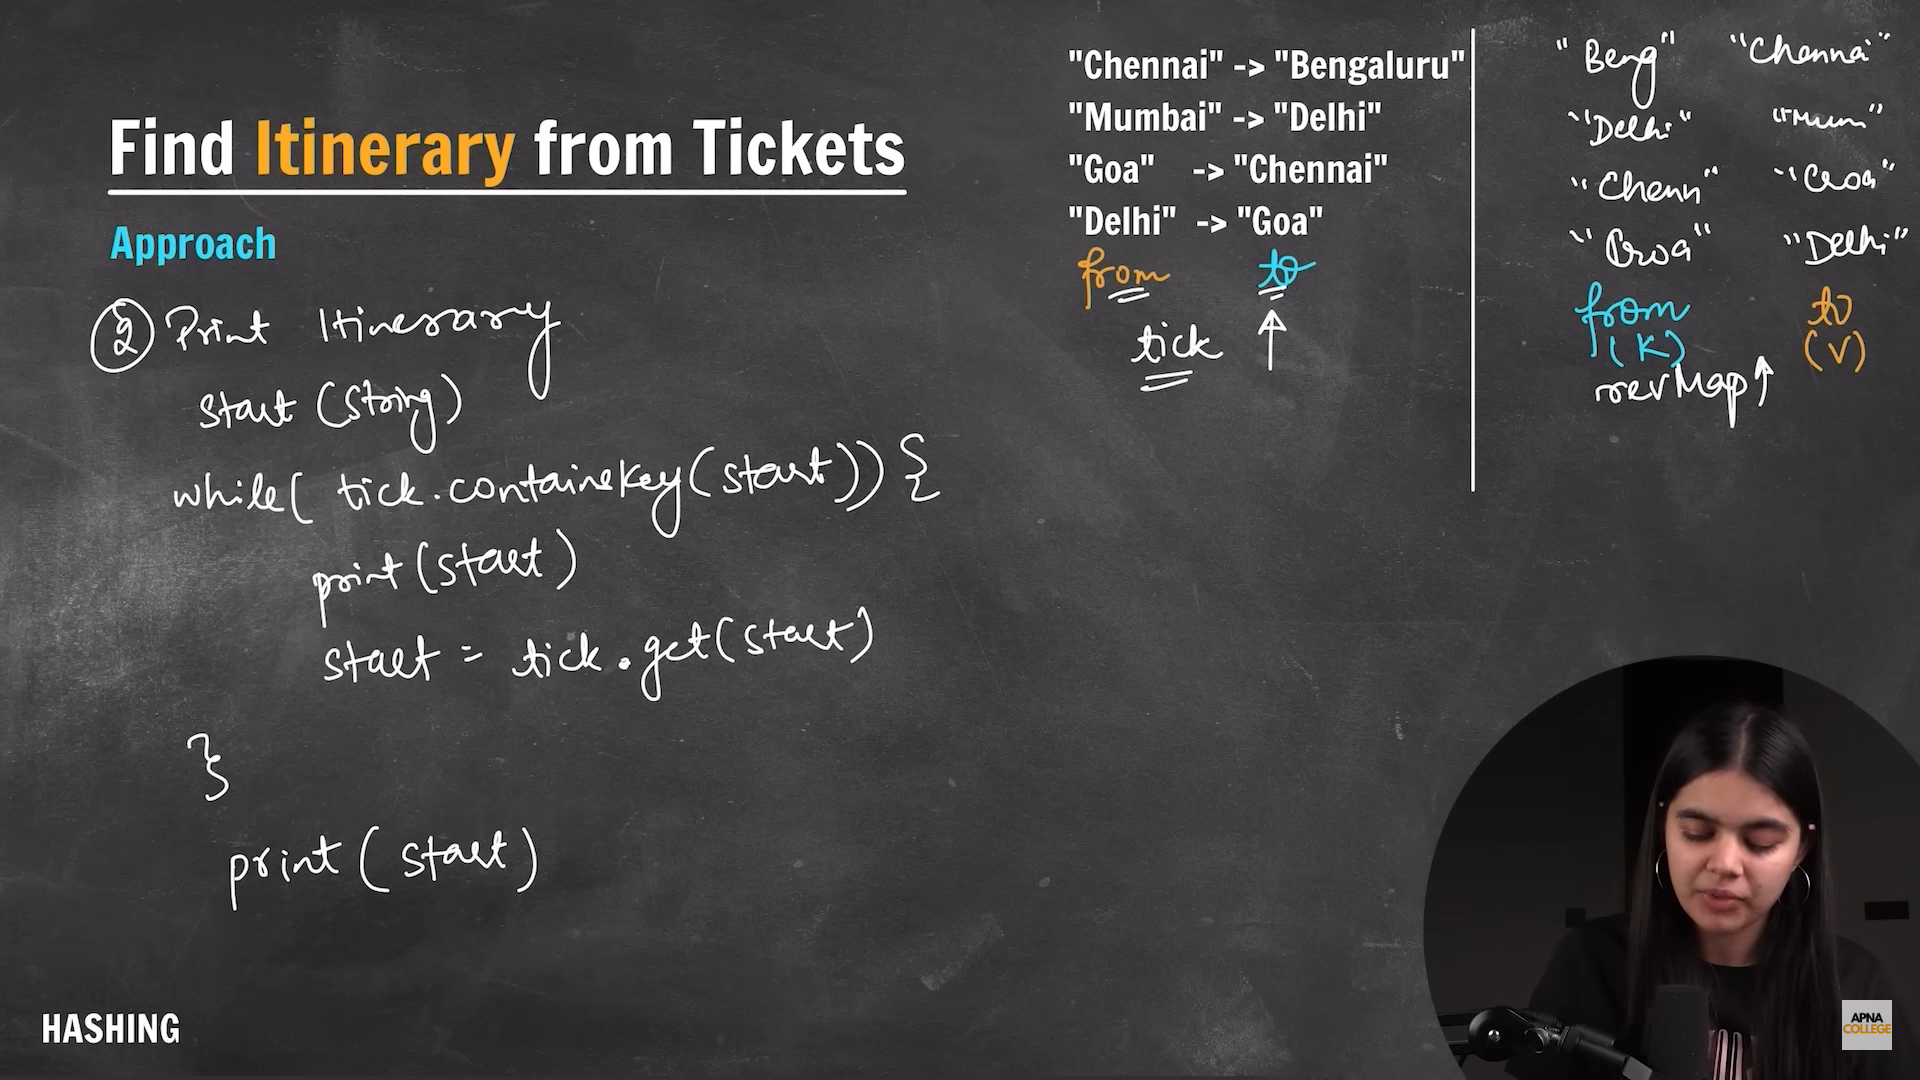 Find Itinerary from Tickets
Approach
② Print Itinerary
start (string)
while( tick.containsKey(start)) {
print (start)
start = tick.get(start)
}
print ( start )
HASHING
"Chennai" -> "Bengaluru"
"Mumbai" -> "Delhi"
"Goa" -> "Chennai"
"Delhi" -> "Goa"
from to
tick ↑
"Beng" "Chennai"
"Delhi" "Mum"
"Chenn" "Goa"
"Goa" "Delhi"
from to
(K) (V)
revMap ↑
APNA
COLLEGE